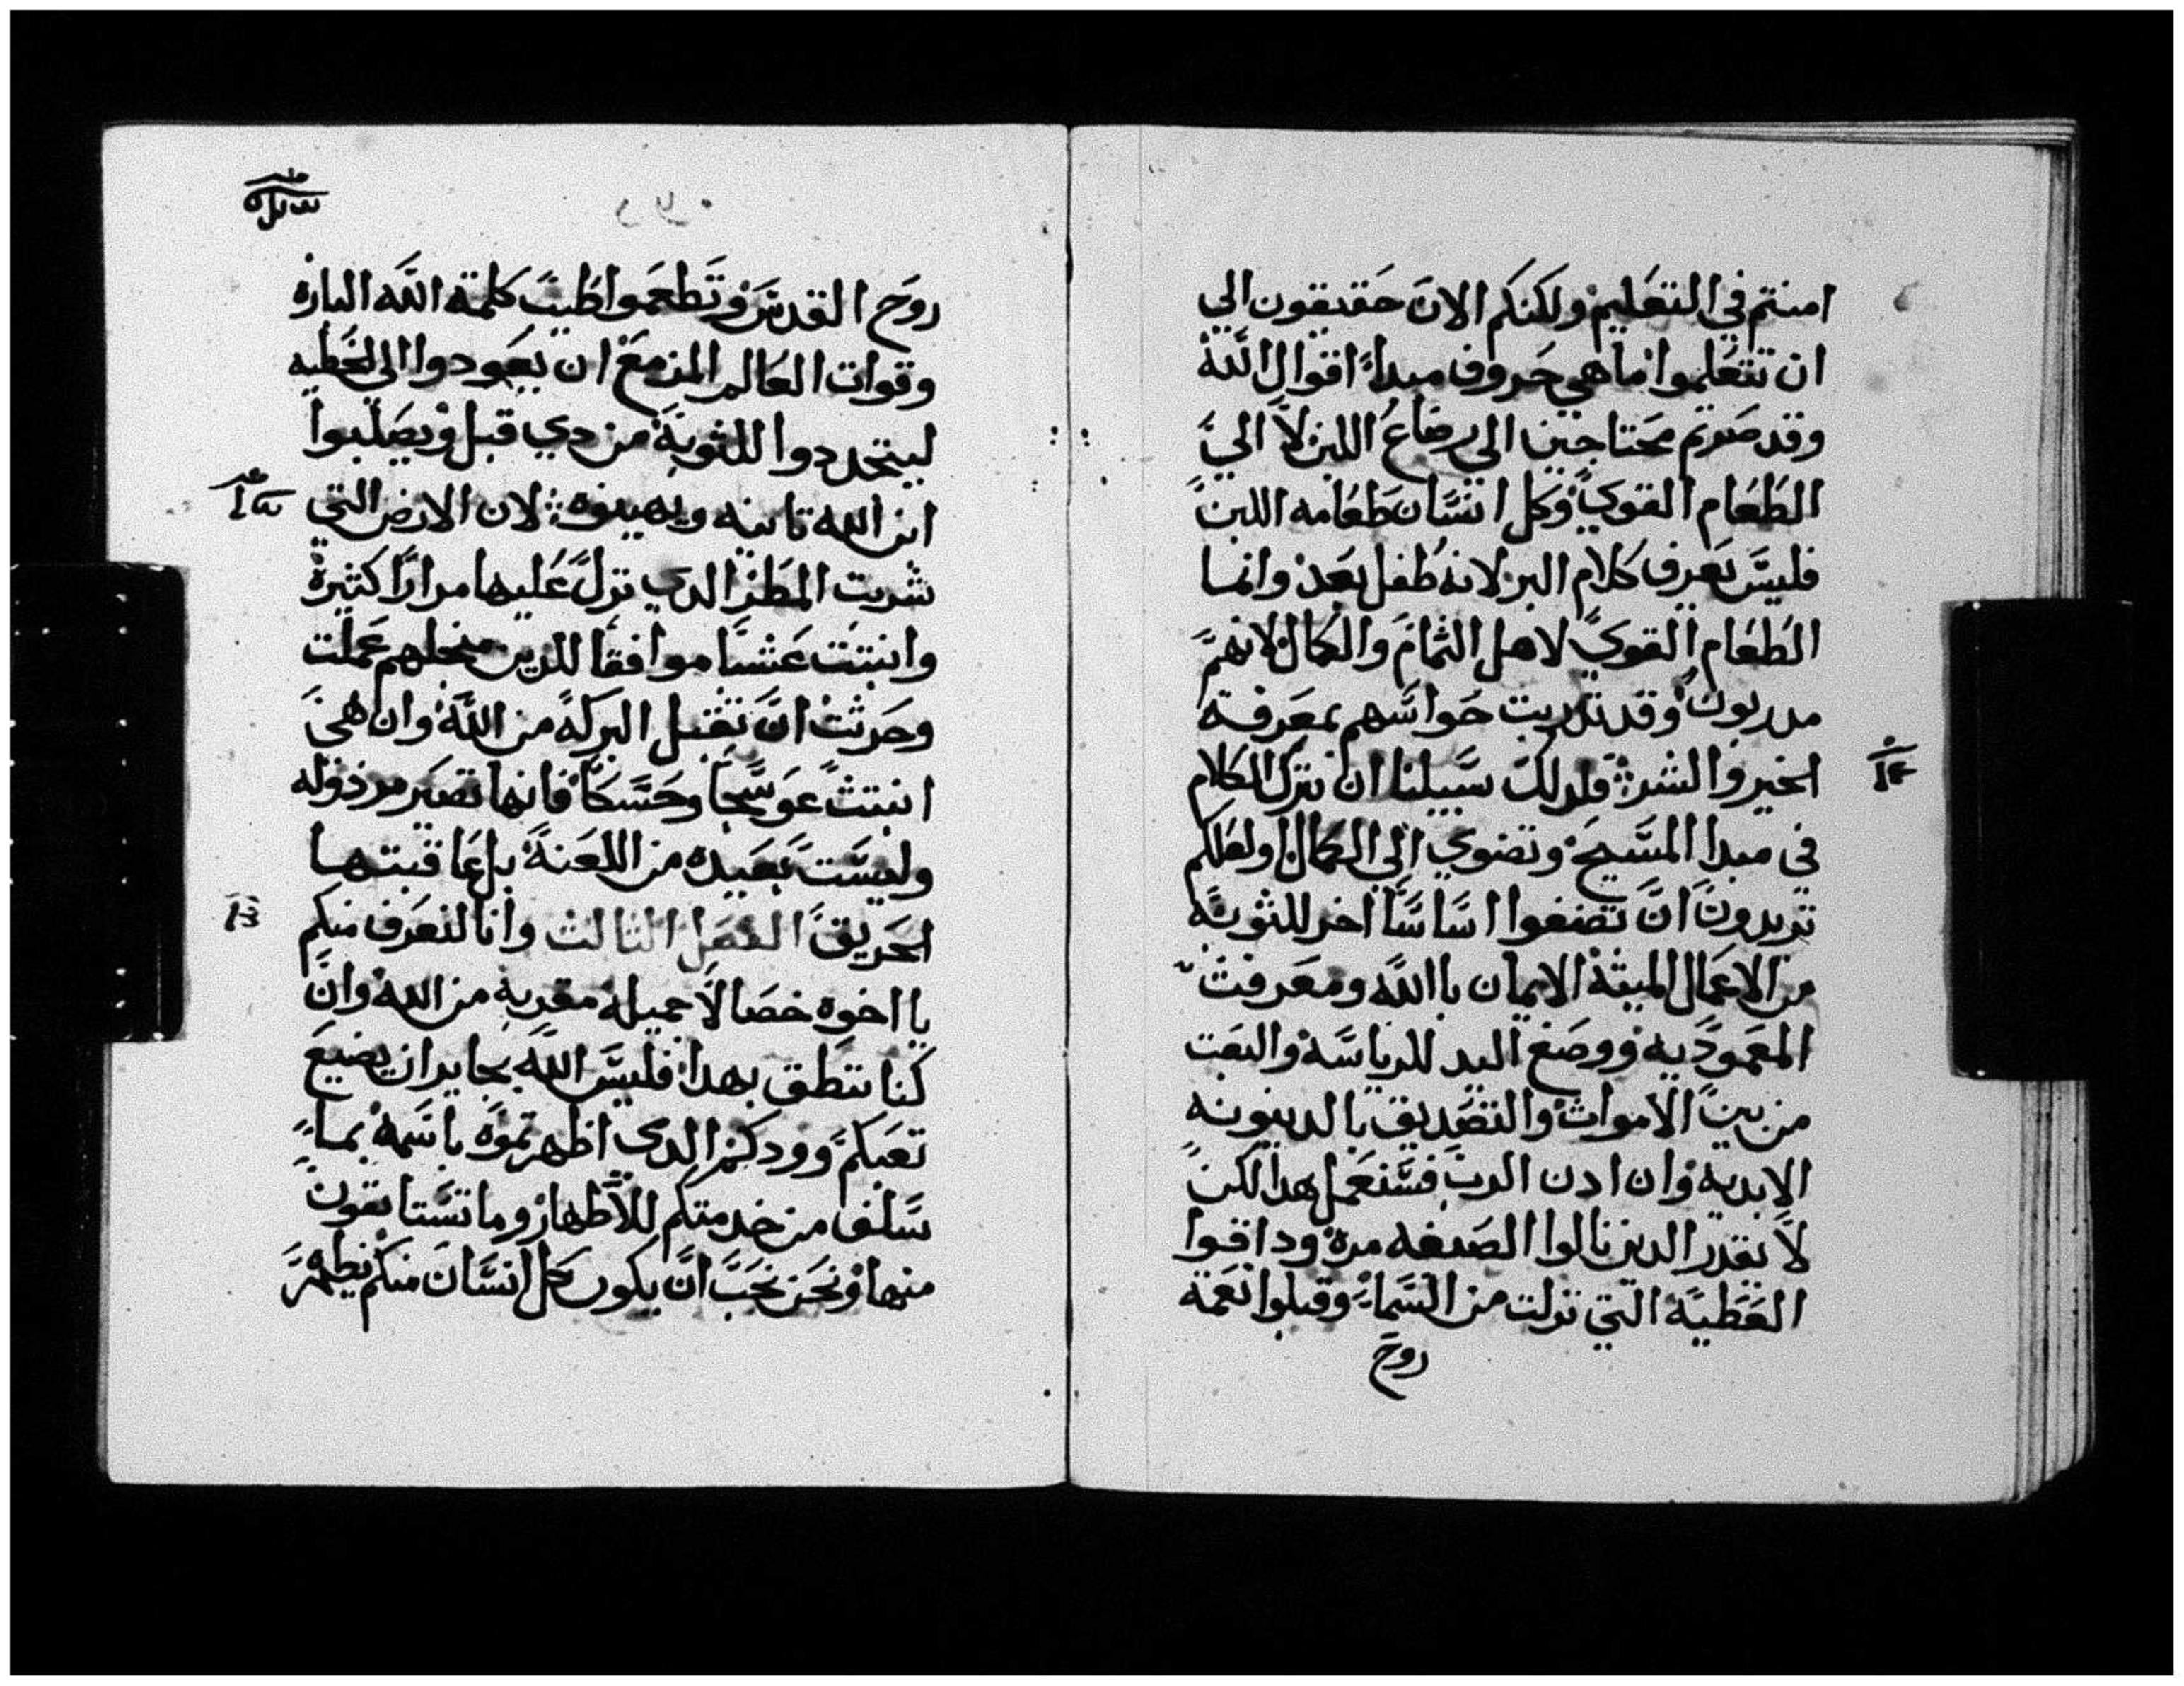 امنتم في التعليم ولكنكم الان حقيقون الي
ان تتعلموا ما هي حروف مبداء اقوال الله
وقد صرتم محتاجين الى رضاع اللبن لا الي
الطعام القوي وكل انسان طعامه اللبن
فليس يعرف كلام البر لانه طفل بعد وانما
الطعام القوي لاهل التمام والكمال لانهم
مدربون وقد تدربت حواسهم بمعرفة
الخير والشر فلدلك سبيلنا ان نترك الكلام
في مبدا المسيح ونضوي الى الكمال او لعلكم
تريدون ان تضعوا اساسا اخر للثوبة
من الاعمال الميته الايمان باالله ومعرفت
المعموديه ووضع اليد للرياسة والبعت
من بين الاموات والتصديق بالدينونه
الابديه وان ادن الرب فسنعمل هدا لكن
لا يقدر الدين نالوا الصبغه مرة وداقوا
العطية التي نزلت من السماء وقبلوا نعمة
روح
روح القدس وتطعموا طيب كلمة الله الباره
وقوات العالم المزمع ان يعودوا الي الخطيه
ليتجددوا للثوبة من دي قبل ويصلبوا
ابن الله تانيه ويهينوه لان الارض التي
شربت المطر الدي نزل عليها مرارا كثيرة
وانبتت عشبا موافقا للدين من اجلهم عملت
وحرثت ان تقبل البركة من الله وان هي
انبتت عوسجا وحسكا فانها تصير مرذوله
وليست بعيده من اللعنة بل عاقبتها
الحريق الفصل الثالث وانا لنعرف منكم
يا اخوه خصالا جميلة مقربة من الله وان
كنا ننطق بهدا فليس الله بجاير ان يضيع
تعبكم وودكم الدي اظهرتموه باسمه بما
سلف من خدمتكم للاطهار وما تستانقون
منها ونحن نحب ان يكون كل انسان منكم يظهر